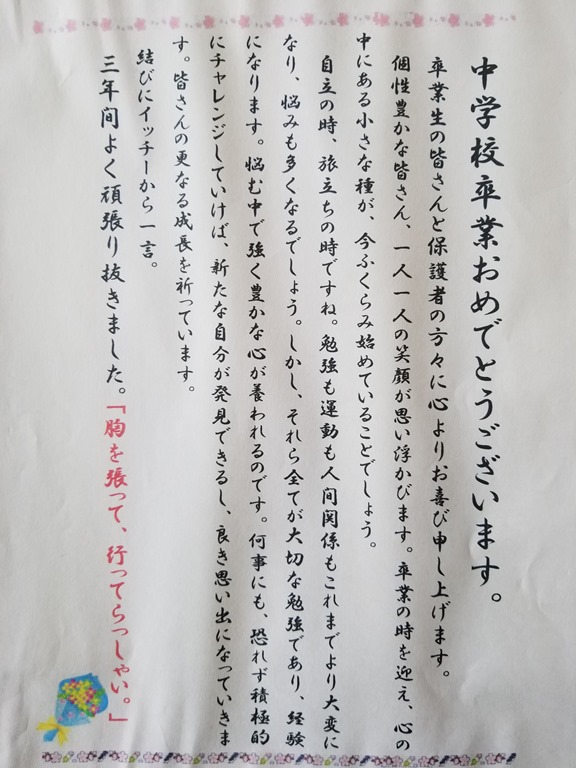 中学校卒業おめでとうございます。
卒業生の皆さんと保護者の方々に心よりお喜び申し上げます。
個性豊かな皆さん、一人一人の笑顔が思い浮かびます。卒業の時を迎え、心の
中にある小さな種が、今ふくらみ始めていることでしょう。
自立の時、旅立ちの時ですね。勉強も運動も人間関係もこれまでより大変に
なり、悩みも多くなるでしょう。しかし、それら全てが大切な勉強であり、経験
になります。悩む中で強く豊かな心が養われるのです。何事にも、恐れず積極的
にチャレンジしていけば、新たな自分が発見できるし、良き思い出になっていきま
す。皆さんの更なる成長を祈っています。
結びにイッチーから一言。
三年間よく頑張り抜きました。「胸を張って、行ってらっしゃい。」